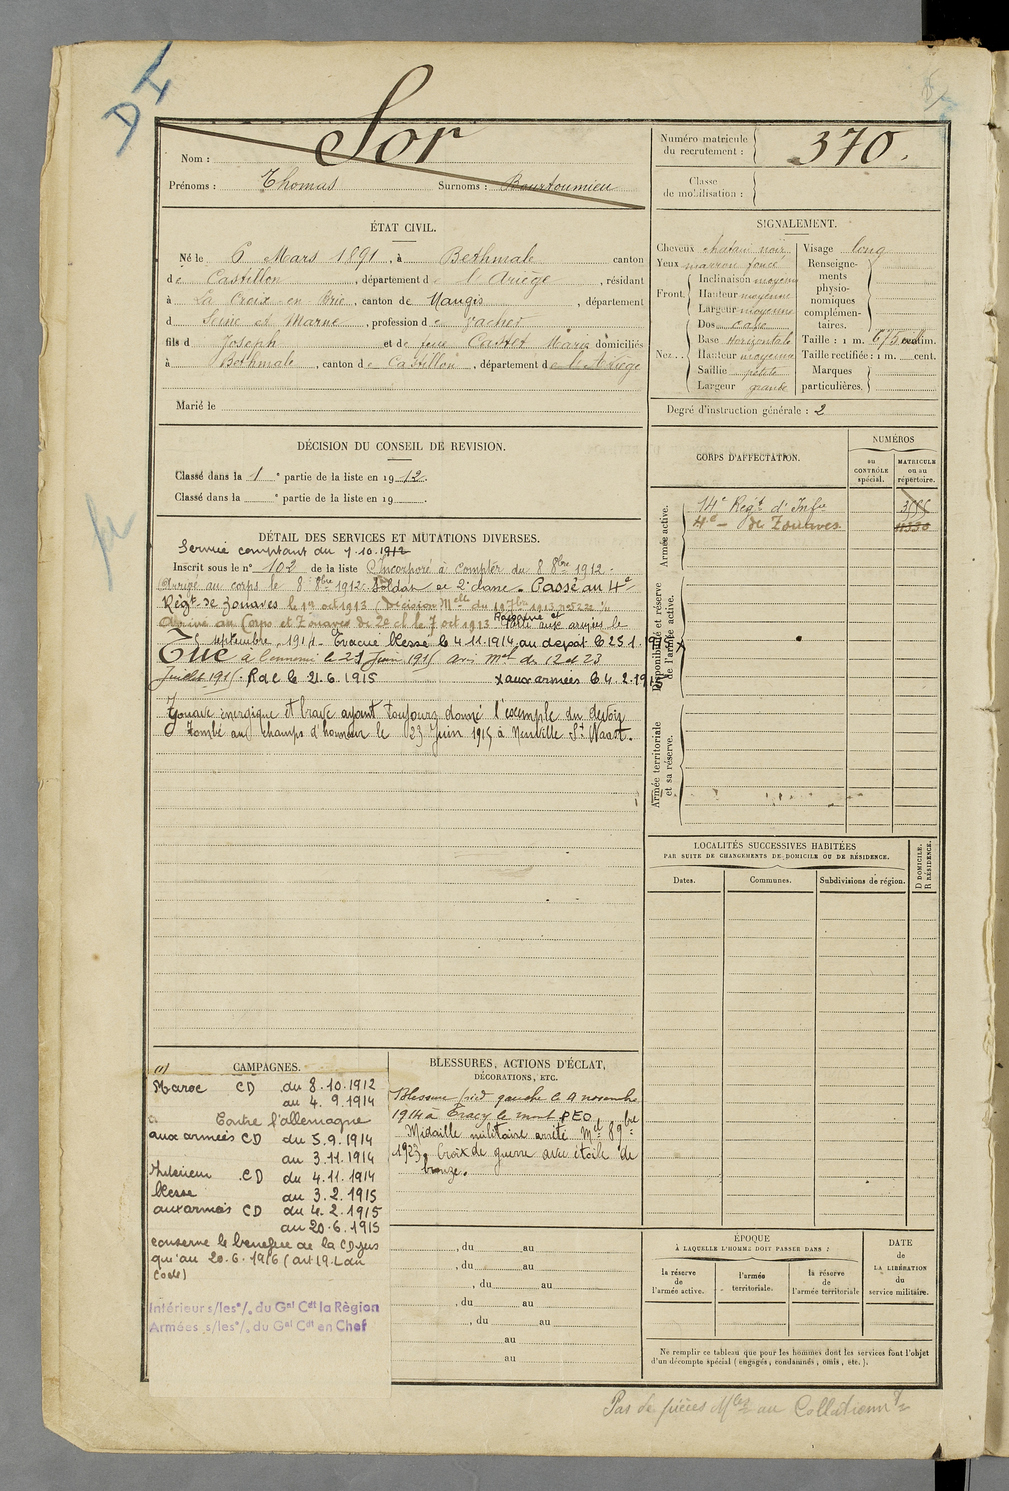 DI
Nom : Sor
Prénoms : Thomas Surnoms : Bourtoumieu
Numéro matricule
du recrutement : 370.
Classe
de mobilisation :
ÉTAT CIVIL.
Né le 6 Mars 1891, à Bethmale canton
de Castillon, département de l'Ariège, résidant
à La Croix en Brie, canton de Nangis, département
d Seine et Marne, profession de vacher
fils d Joseph et de feue Castet Marie domiciliés
à Bethmale, canton de Castillon, département de l'Ariège
Marié le
SIGNALEMENT.
Cheveux chatain noir
Yeux marron foncé
Front. Inclinaison moyenne
Hauteur moyenne
Largeur moyenne
Nez. Dos cave
Base horizontale
Hauteur moyenne
Saillie petite
Largeur grande
Visage long
Renseigne-
ments
physio-
nomiques
complémen-
taires.
Taille : 1 m. 675 millim.
Taille rectifiée : 1 m. cent.
Marques
particulières.
Degré d'instruction générale : 2
DÉCISION DU CONSEIL DE REVISION.
Classé dans la 1e partie de la liste en 1912.
Classé dans la e partie de la liste en 19 .
CORPS D'AFFECTATION.
NUMÉROS
au
CONTRÔLE
spécial.
MATRICULE
ou au
répertoire.
Armée active.
14e Regt d'Infie
4e - de Zouaves 11330
Disponibilité et réserve
de l'armée active.
Armée territoriale
et sa réserve.
DÉTAIL DES SERVICES ET MUTATIONS DIVERSES.
Service comptant du 1.10.1912
Inscrit sous le n° 102 de la liste Incorporé à compter du 8 8bre 1912.
Arrivé au corps le 8 8bre 1912. Soldat de 2e classe. Passé au 4e
Régt de Zouaves le 1er oct 1913 (Décision Melle du 19 7bre 1913
Arrivé au Corps et Zouave de 2e cl le 7 oct 1913. Parti aux armées le
5 septembre 1914. Evacué blessé le 4.11.1914, au depot le 25.1.1915 x
Tué à l'ennemi le 21 Juin 1915 avis Mel des 12 et 23
Juillet 1915. R d c le 21.6.1915 x aux armées le 4.2.1915
Zouave énergique et brave ayant toujours donné l'exemple du devoir
Tombé au champs d'honneur le 23 Juin 1915 à Neuville St Waast.
LOCALITÉS SUCCESSIVES HABITÉES
PAR SUITE DE CHANGEMENTS DE DOMICILE OU DE RÉSIDENCE.
Dates. Communes. Subdivisions de région. D DOMICILE.
R RÉSIDENCE.
(1) CAMPAGNES.
Maroc CD du 8.10.1912
au 4.9.1914
Contre l'allemagne
aux armées CD du 5.9.1914
au 3.11.1914
Intérieur CD du 4.11.1914
blessé au 3.2.1915
aux armées CD du 4.2.1915
au 20.6.1915
conserve le benefice de la CD jus
qu'au 20.6.1916 (art 19.L du
Code)
Intérieur s/les °/. du Gal Cdt la Région
Armées s/les °/. du Gal Cdt en Chef
BLESSURES, ACTIONS D'ÉCLAT,
DÉCORATIONS, ETC.
Blessure pied gauche le 4 novembre
1914 à Tracy le mont PEO
Médaille militaire arrêté Mel 8 9bre
1923. Croix de guerre avec étoile de
bronze.
, du au
, du au
, du au
, du au
, du au
au
au
ÉPOQUE
À LAQUELLE L'HOMME DOIT PASSER DANS :
la réserve
de
l'armée active.
l'armée
territoriale.
la réserve
de
l'armée territoriale
DATE
de
LA LIBÉRATION
du
service militaire.
Ne remplir ce tableau que pour les hommes dont les services font l'objet
d'un décompte spécial (engagés, condamnés, omis, etc.).
Pas de pièces Mles au